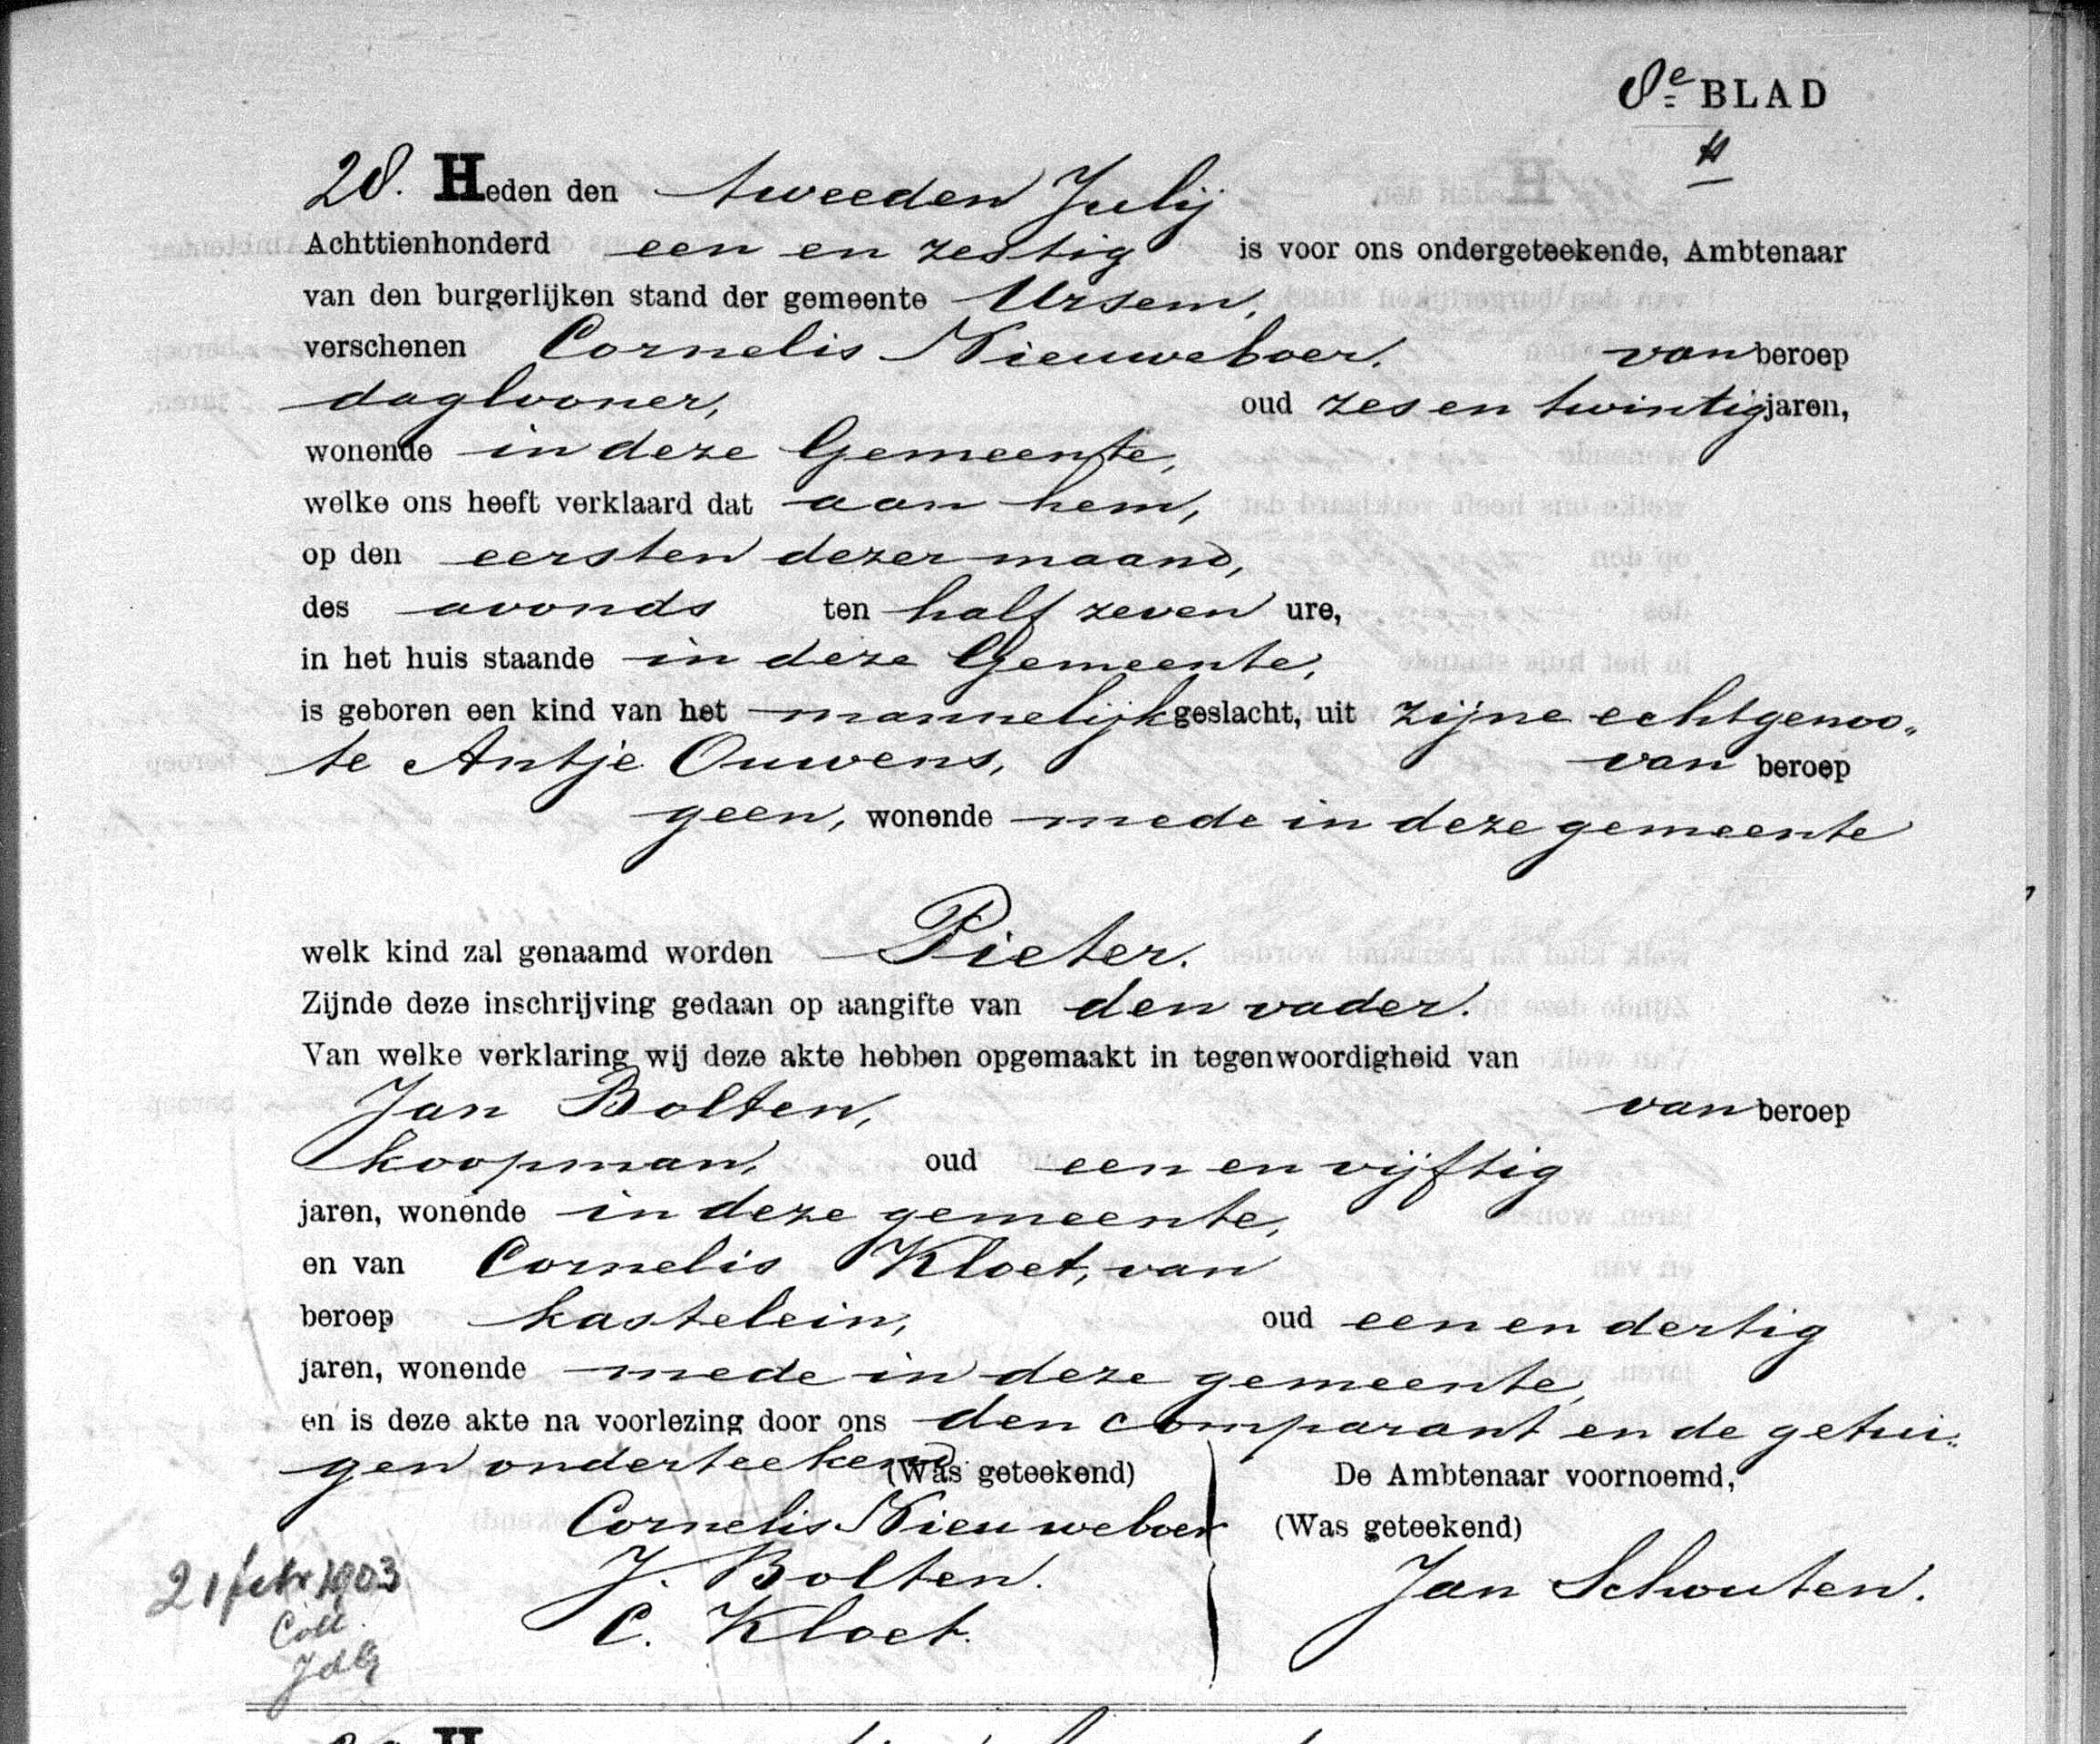 8e BLAD
28. Heden den tweeden Julij
Achttienhonderd een en zestig is voor ons ondergeteekende, Ambtenaar
van den burgerlijken stand der gemeente Ursem,
verschenen Cornelis Nieuweboer. van beroep
daglooner, oud zes en twintig jaren,
wonende in deze Gemeente,
welke ons heeft verklaard dat aan hem,
op den eersten dezer maand,
des avonds ten half zeven ure,
in het huis staande in deze Gemeente,
is geboren een kind van het mannelijk geslacht, uit zijne echtgenoo„
te Antje Ouwens, van beroep
geen, wonende mede in deze gemeente
welk kind zal genaamd worden Pieter.
Zijnde deze inschrijving gedaan op aangifte van den vader.
Van welke verklaring wij deze akte hebben opgemaakt in tegenwoordigheid van
Jan Bolten, van beroep
koopman, oud een en vijftig
jaren, wonende in deze gemeente,
en van Cornelis Kloet, van
beroep kastelein, oud een en dertig
jaren, wonende mede in deze gemeente,
en is deze akte na voorlezing door ons den comparant en de getui„
gen onderteekend (Was geteekend) De Ambtenaar voornoemd,
Cornelis Nieuweboer (Was geteekend)
J. Bolten. Jan Schouten.
C. Kloet.
21 febr 1903
Coll.